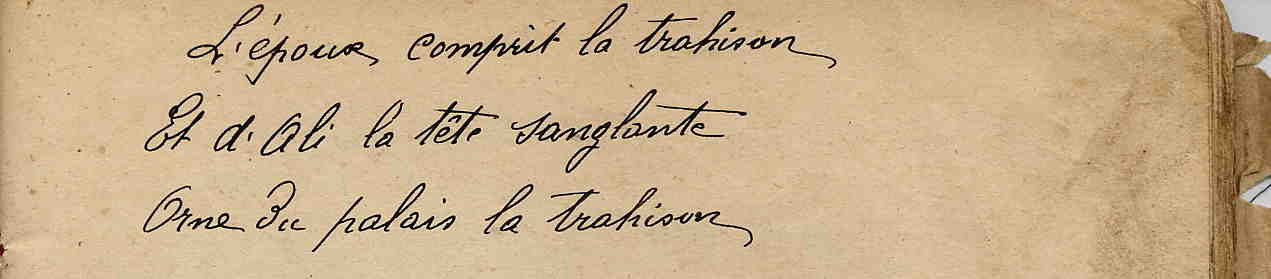 L'époux comprit la trahison
Et d'Ali la tête sanglante
Orne du palais la trahison